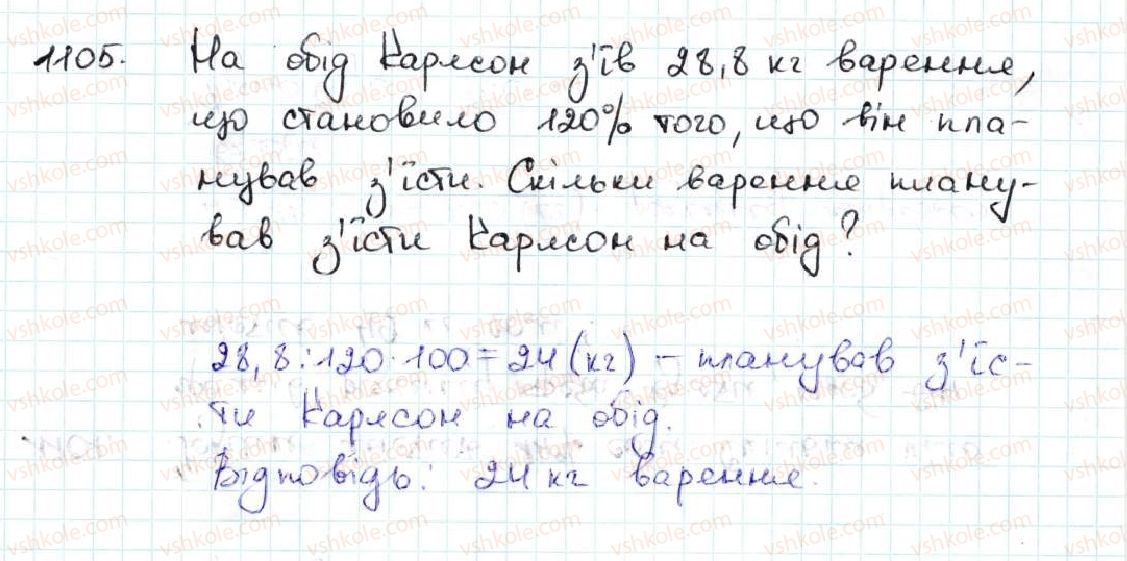 1105. На обід Карлсон з'їв 28,8 кг варення,
що становило 120% того, що він пла-
нував з'їсти. Скільки варення плану-
вав з'їсти Карлсон на обід?
28,8:120·100=24 (кг) – планував з'їс-
ти Карлсон на обід.
Відповідь: 24 кг варення.